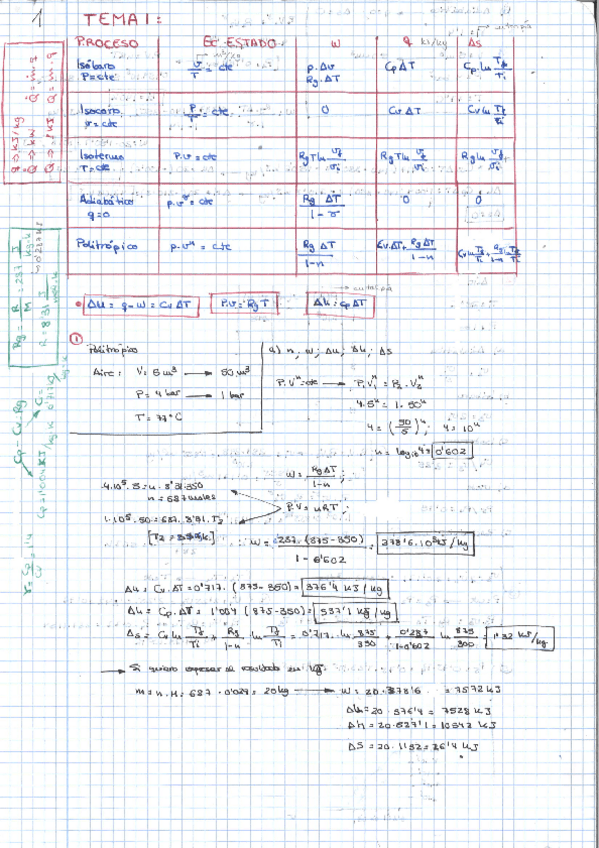 1
TEMA 1:
PROCESO EC ESTADO w q kJ/kg Δs
Isóbaro P=cte v/T = cte p.Δv Rg.ΔT Cp ΔT Cp.ln Tf/Ti
Isocoro v=cte P/T = cte 0 Cv ΔT Cv ln Tf/Ti
Isotermo T=cte P.v = cte Rg T ln vf/vi Rg T ln vf/vi Rg ln vf/vi
Adiabático q=0 p.v^γ = cte Rg ΔT/1-γ 0 0
Politrópico p.v^n = cte Rg ΔT/1-n Cv.ΔT+ Rg ΔT/1-n Cv ln Tf/Ti + Rg/1-n ln Tf/Ti
Δu = q-w = Cv ΔT P.v = Rg T Δh = Cp ΔT
q → kJ/kg
Q̇ → kW Q̇ = ṁ.q
Rg = R/M = 287 J/kg.k
R = 8'31 J/mol.k
Cp - Cv = Rg
Cp = 1'004 kJ/kg.k
γ = Cp/Cv = 1'4
1
Politrópico
Aire: V = 5 m³ → 50 m³
P = 4 bar → 1 bar
T = 77°C
a) n, w, Δu, Δh, Δs
P.V^n = cte → P₁V₁^n = P₂.V₂^n
4.5^n = 1.50^n
4 = (50/5)^n ; 4 = 10^n
n = log₁₀ 4 = 0'602
w = Rg ΔT/1-n ;
4.10⁵.5 = n.8'31.350
n = 687 moles
P.V = nRT ;
1.10⁵.50 = 687.8'31.T₂
w = 287.(875-350)/1-0'602 = 378'6.10³ J/kg
Δu = Cv.ΔT = 0'717.(875-350) = 376'4 kJ/kg
Δh = Cp.ΔT = 1'004 (875-350) = 527'1 kJ/kg
Δs = Cv ln Tf/Ti + Rg/1-n . ln Tf/Ti = 0'717. ln 875/350 + 0'287/1-0'602 ln 875/300 = 1'32 kJ/kg
→ Si quiero expresar el resultado en kJ:
m = n.M = 687.0'029 = 20 kg → w = 20.378'6 = 7572 kJ
Δu = 20.376'4 = 7528 kJ
Δh = 20.527'1 = 10542 kJ
ΔS = 20.1'32 = 26'4 kJ